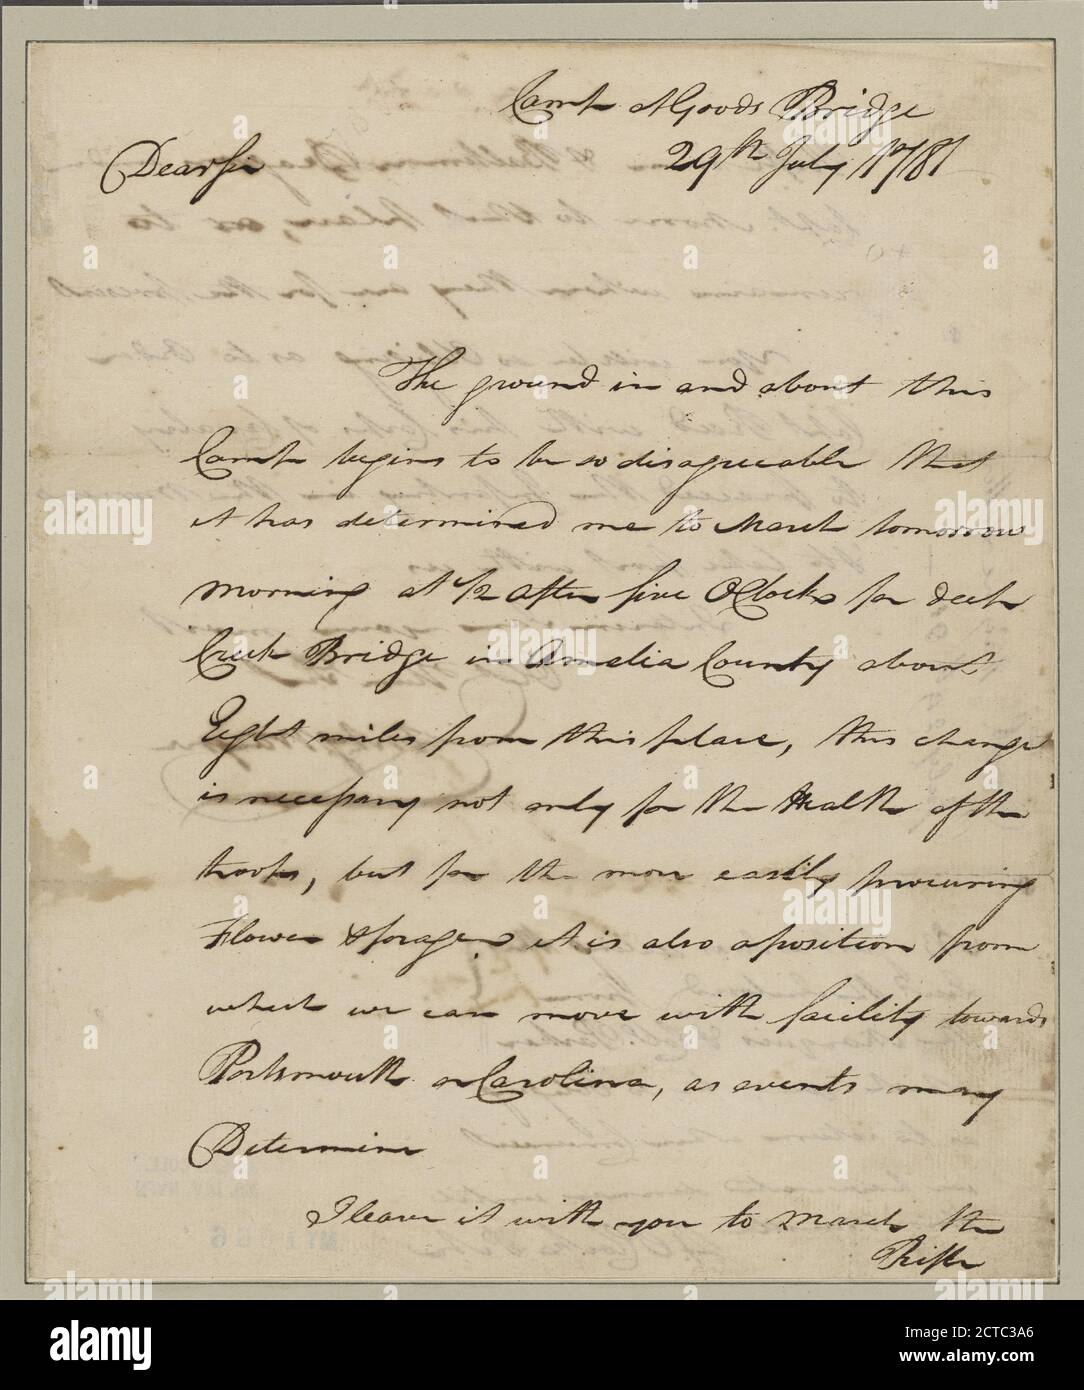 Camp at Goods Bridge
29th July 1781
Dear Sir
The ground in and about this
Camp begins to be so disagreeable that
it has determined me to March tomorrow
morning at 1/2 after five OClock for deep
Creek Bridge in Amelia County about
Eight miles from this place, this change
is necessary not only for the Health of the
troops, but for the more easily procuring
Flower & forage, it is also a position from
which we can move with facility towards
Portsmouth or Carolina, as events may
Determine
I leave it with you to march the
Rifle
alamy
Image ID: 2CTC3A6
www.alamy.com